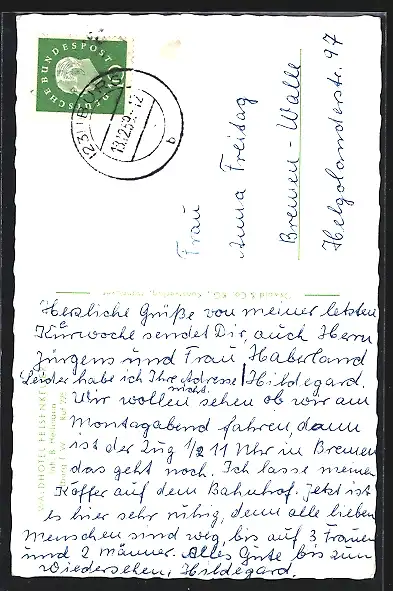 DEUTSCHE BUNDESPOST
13.12.59.-12
b
Frau
Anna Freitag
Bremen-Walle
Helgolanderstr. 97
Herzliche Grüße von meiner letzten
Kurwoche sendet Dir, auch Herrn
Jürgens und Frau Haberland
Leider habe ich Ihre Adresse nicht. Hildegard.
Wir wollen sehen ob wir am
Montagabend fahren, dann
ist der Zug 1/2 11 Uhr in Bremen
das geht noch. Ich lasse meinen
Koffer auf dem Bahnhof. Jetzt ist
es hier sehr ruhig, denn alle lieben
Menschen sind weg, bis auf 3 Frauen
und 2 Männer. Alles Gute bis zum
Wiedersehen, Hildegard.
WALDHOTEL FELSENKELLER